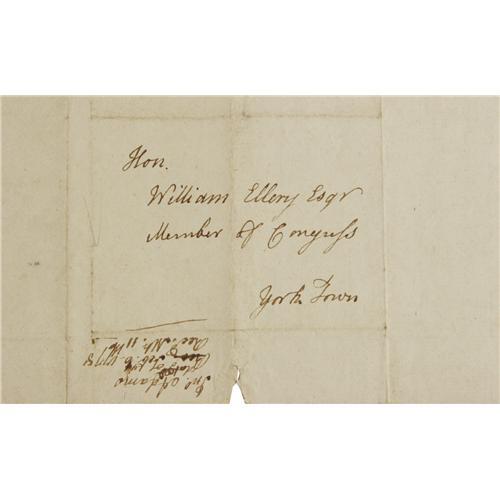 Hon.
William Ellery Esqr
Member of Congress
York Town
Jn. Adams
Feb. 6 1778
Rec. Mh. 11th